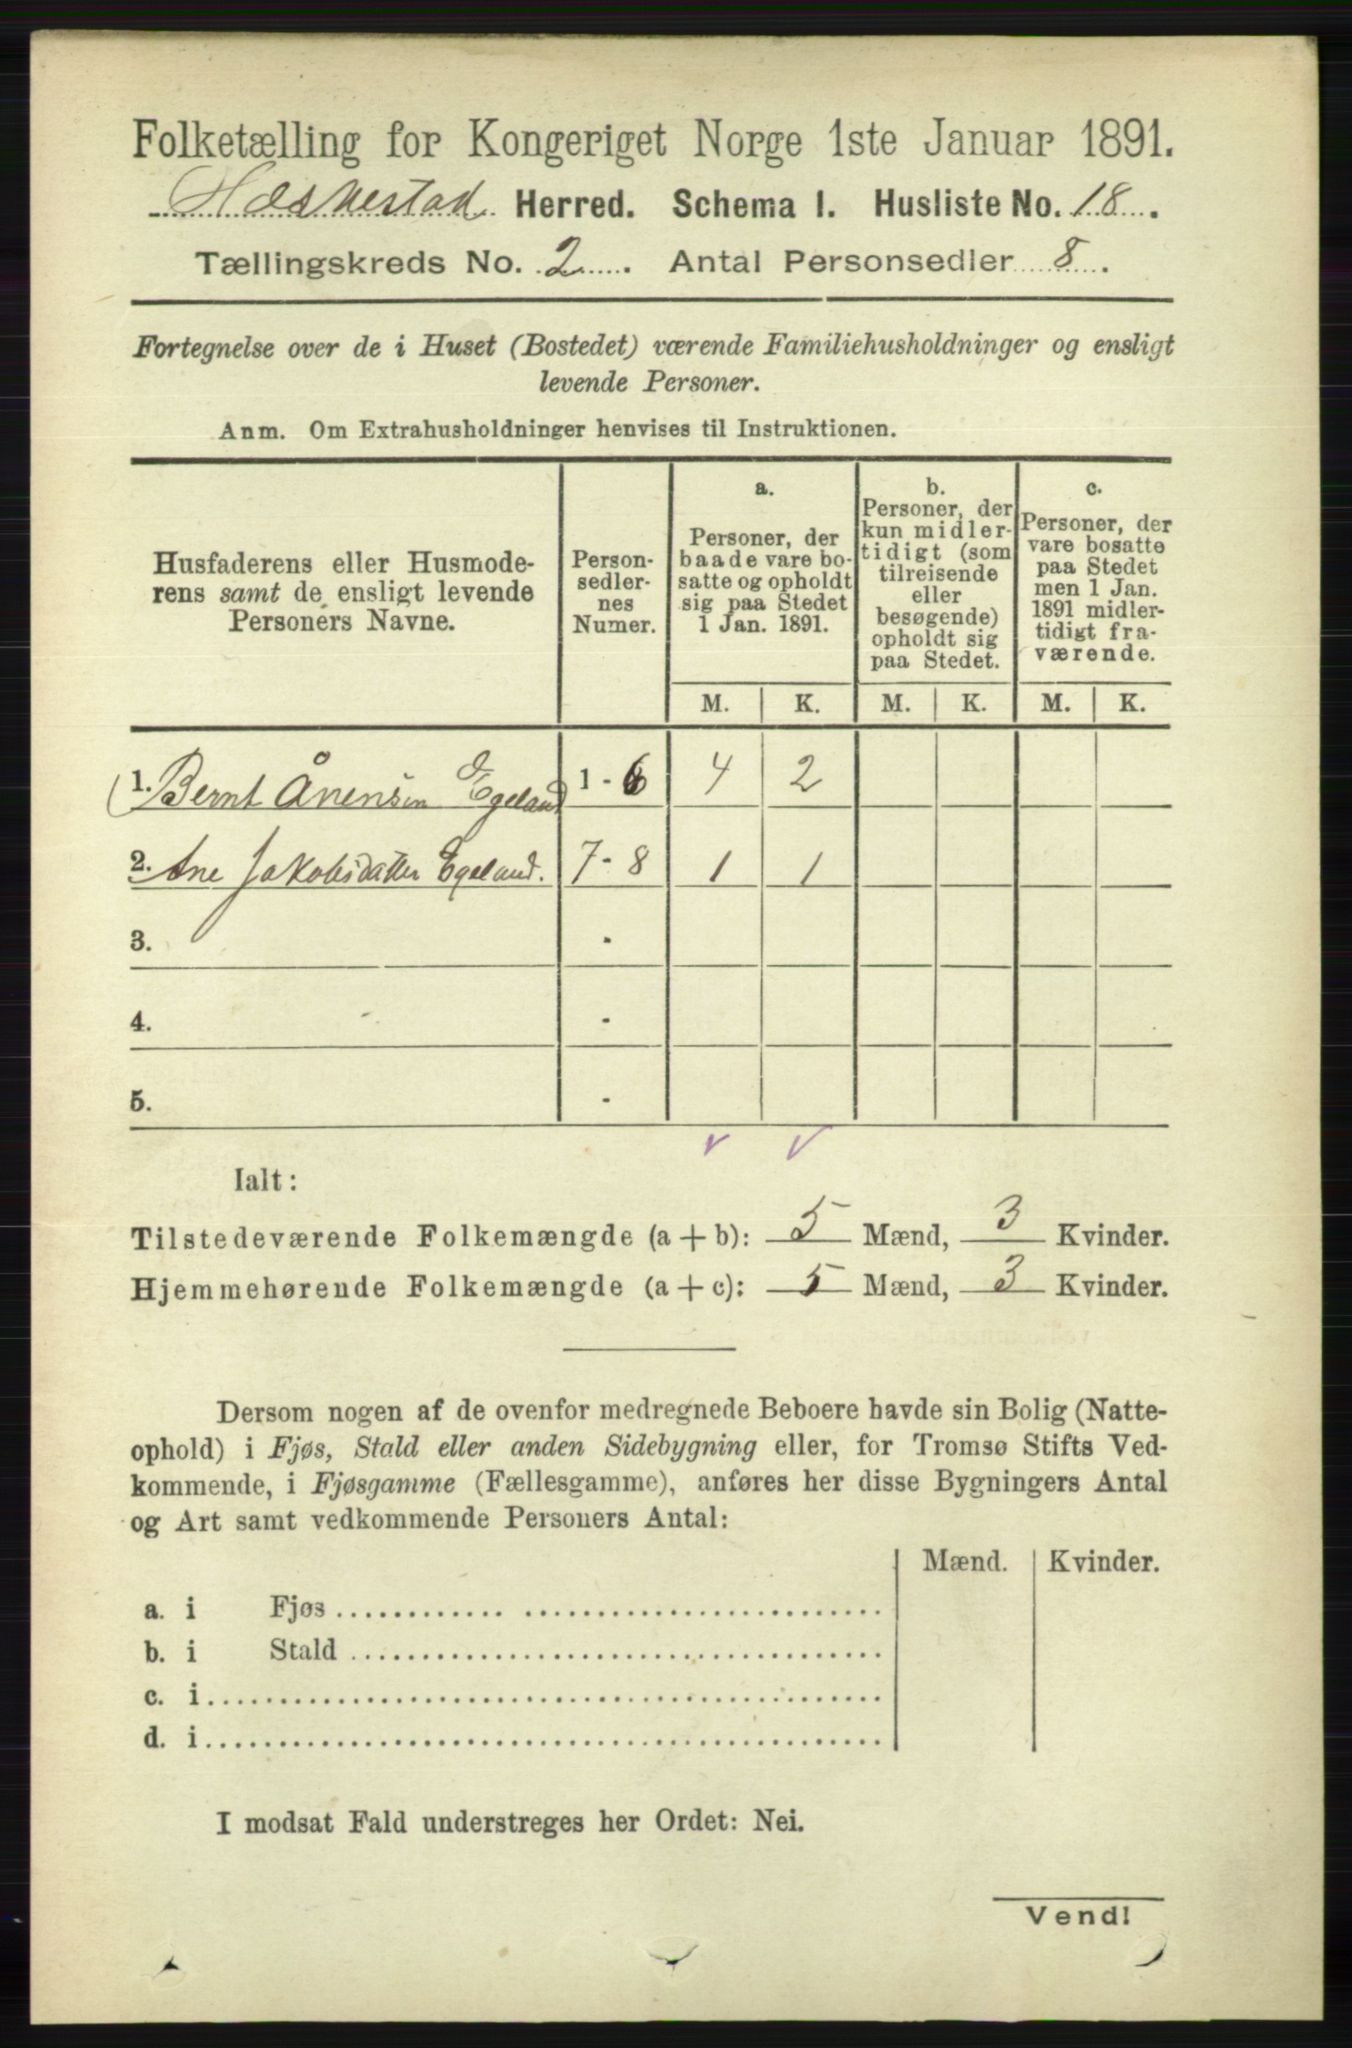 Folketælling for Kongeriget Norge 1ste Januar 1891.
Heskestad Herred. Schema I. Husliste No. 18.
Tællingskreds No. 2. Antal Personsedler 8.
Fortegnelse over de i Huset (Bostedet) værende Familiehusholdninger og ensligt
levende Personer.
Anm. Om Extrahusholdninger henvises til Instruktionen.
Husfaderens eller Husmode-
rens samt de ensligt levende
Personers Navne.
Person-
sedler-
nes
Numer.
a.
Personer, der
baade vare bo-
satte og opholdt
sig paa Stedet
1 Jan. 1891.
b.
Personer, der
kun midler-
tidigt (som
tilreisende
eller
besøgende)
opholdt sig
paa Stedet.
c.
Personer, der
vare bosatte
paa Stedet
men 1 Jan.
1891 midler-
tidigt fra-
værende.
M. K. M. K. M. K.
1. Bernt Ånensen Egeland 1-6 4 2
2. Ane Jakobsdatter Egeland. 7-8 1 1
3. -
4. -
5. -
Ialt:
Tilstedeværende Folkemængde (a + b): 5 Mænd, 3 Kvinder.
Hjemmehørende Folkemængde (a + c): 5 Mænd, 3 Kvinder.
Dersom nogen af de ovenfor medregnede Beboere havde sin Bolig (Natte-
ophold) i Fjøs, Stald eller anden Sidebygning eller, for Tromsø Stifts Ved-
kommende, i Fjøsgamme (Fællesgamme), anføres her disse Bygningers Antal
og Art samt vedkommende Personers Antal:
Mænd. Kvinder.
a. i Fjøs
b. i Stald
c. i
d. i
I modsat Fald understreges her Ordet: Nei.
Vend!